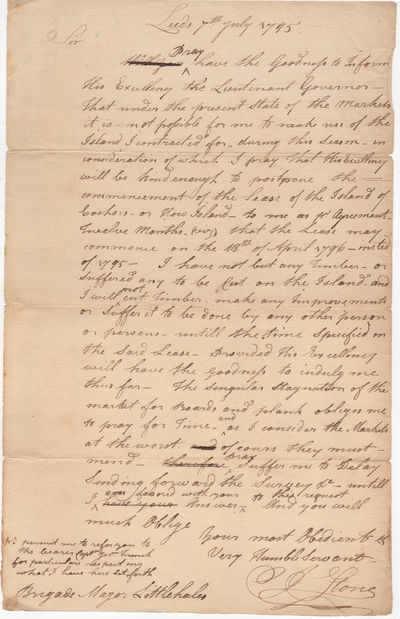 Leeds 7th July 1795
Sir
Pray
have the Goodness to Inform
His Excellency the Lieutenant Governor
that under the present State of the Markets
it is not possible for me to make use of the
Island I contracted for during this Season - in
consideration of which I pray that His Excellency
will be kind enough to postpone the
commencement of the lease of the Island of
or Howe Island - to me as
Twelve Months, (viz) that the Lease may
commence on the 18th of April 1796 - insted
of 1795 - I have not but any Timber - or
Suffered any to be Cut on the Island and
I will not cut Timber - make any Improvements
or Suffer it to be done by any other person
or persons - untill the time Specified on
the Said Lease - Provided His Excellency
will have the Goodness to indulg me
thus far - The Singular Stagnation of the
market for Boards and plank obliges me
to pray for Time - and as I consider the Markets
at the worst and of cours they must
mend - therefore Pray Suffer me to Delay
Sending forward the Survey &c - untill
I am favored with your
have your Answer to this request And you will
much Oblige
Your most Obedient &
Very Humble Servant
PS permit me to refer you to
the bearer French
for particulars respecting
what I have here Set forth
J Stone
Brigade Major Littlehales